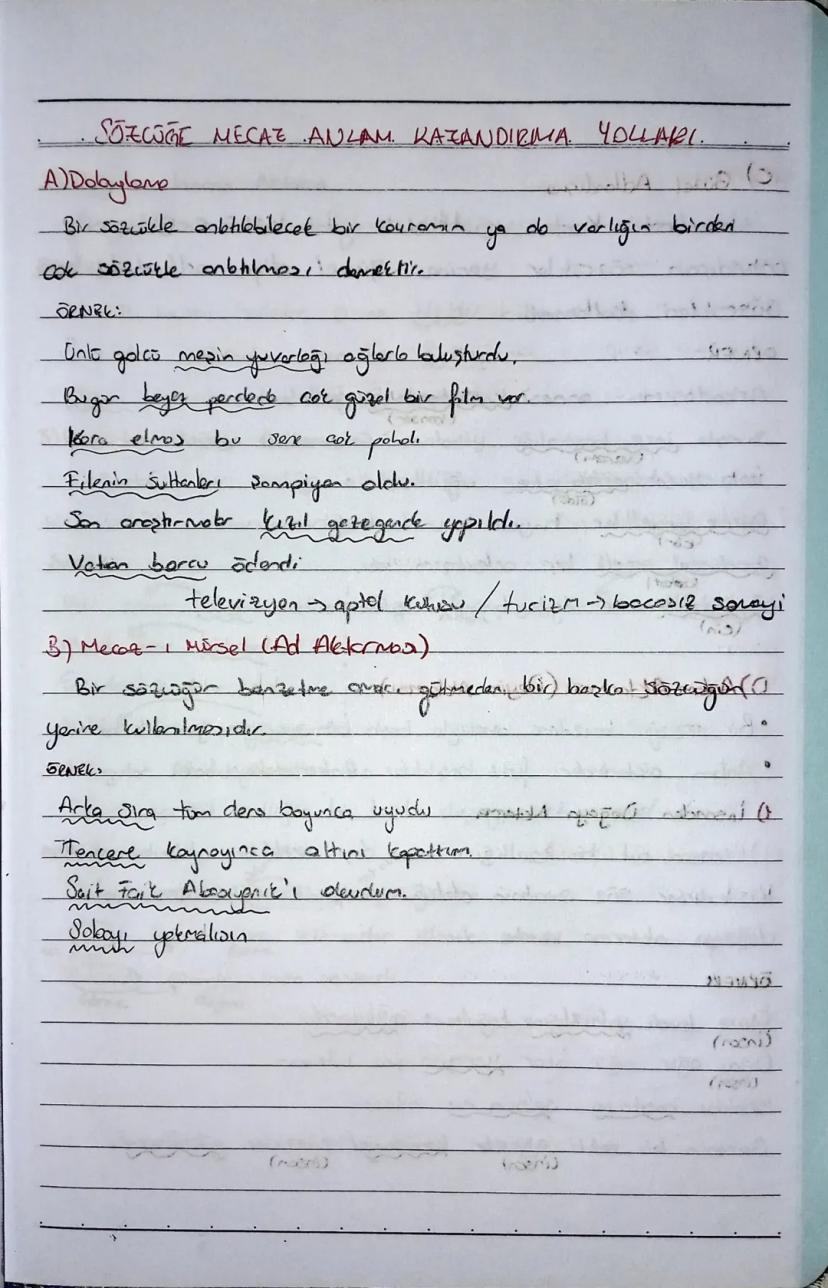 SÖZCÜĞE MECAZ ANLAM KAZANDIRMA YOLLARI
A) Dolaylama
Bir sözcükle anlatılabilecek bir kavramın ya da varlığın birden
çok sözcükle anlatılması demektir.
ÖRNEK:
Ünlü golcü meşin yuvarlağı ağlarla buluşturdu.
Bugün beyaz perdede çok güzel bir film var.
Kara elmas bu sene çok pahalı
Filenin Sultanları şampiyon oldu.
Son araştırmalar kızıl gezegende yapıldı.
Vatan borcu ödendi
televizyon → aptal kutusu / turizm → bacasız sanayi
B) Mecaz-ı Mürsel (Ad Aktarması)
Bir sözcüğün benzetme amacı gütmeden bir başka sözcüğün
yerine kullanılmasıdır.
ÖRNEK:
Arka sıra tüm ders boyunca uyudu
Tencere kaynayınca altını kapattım.
Sait Faik Abasıyanık'ı okudum.
Sobayı yakmalısın